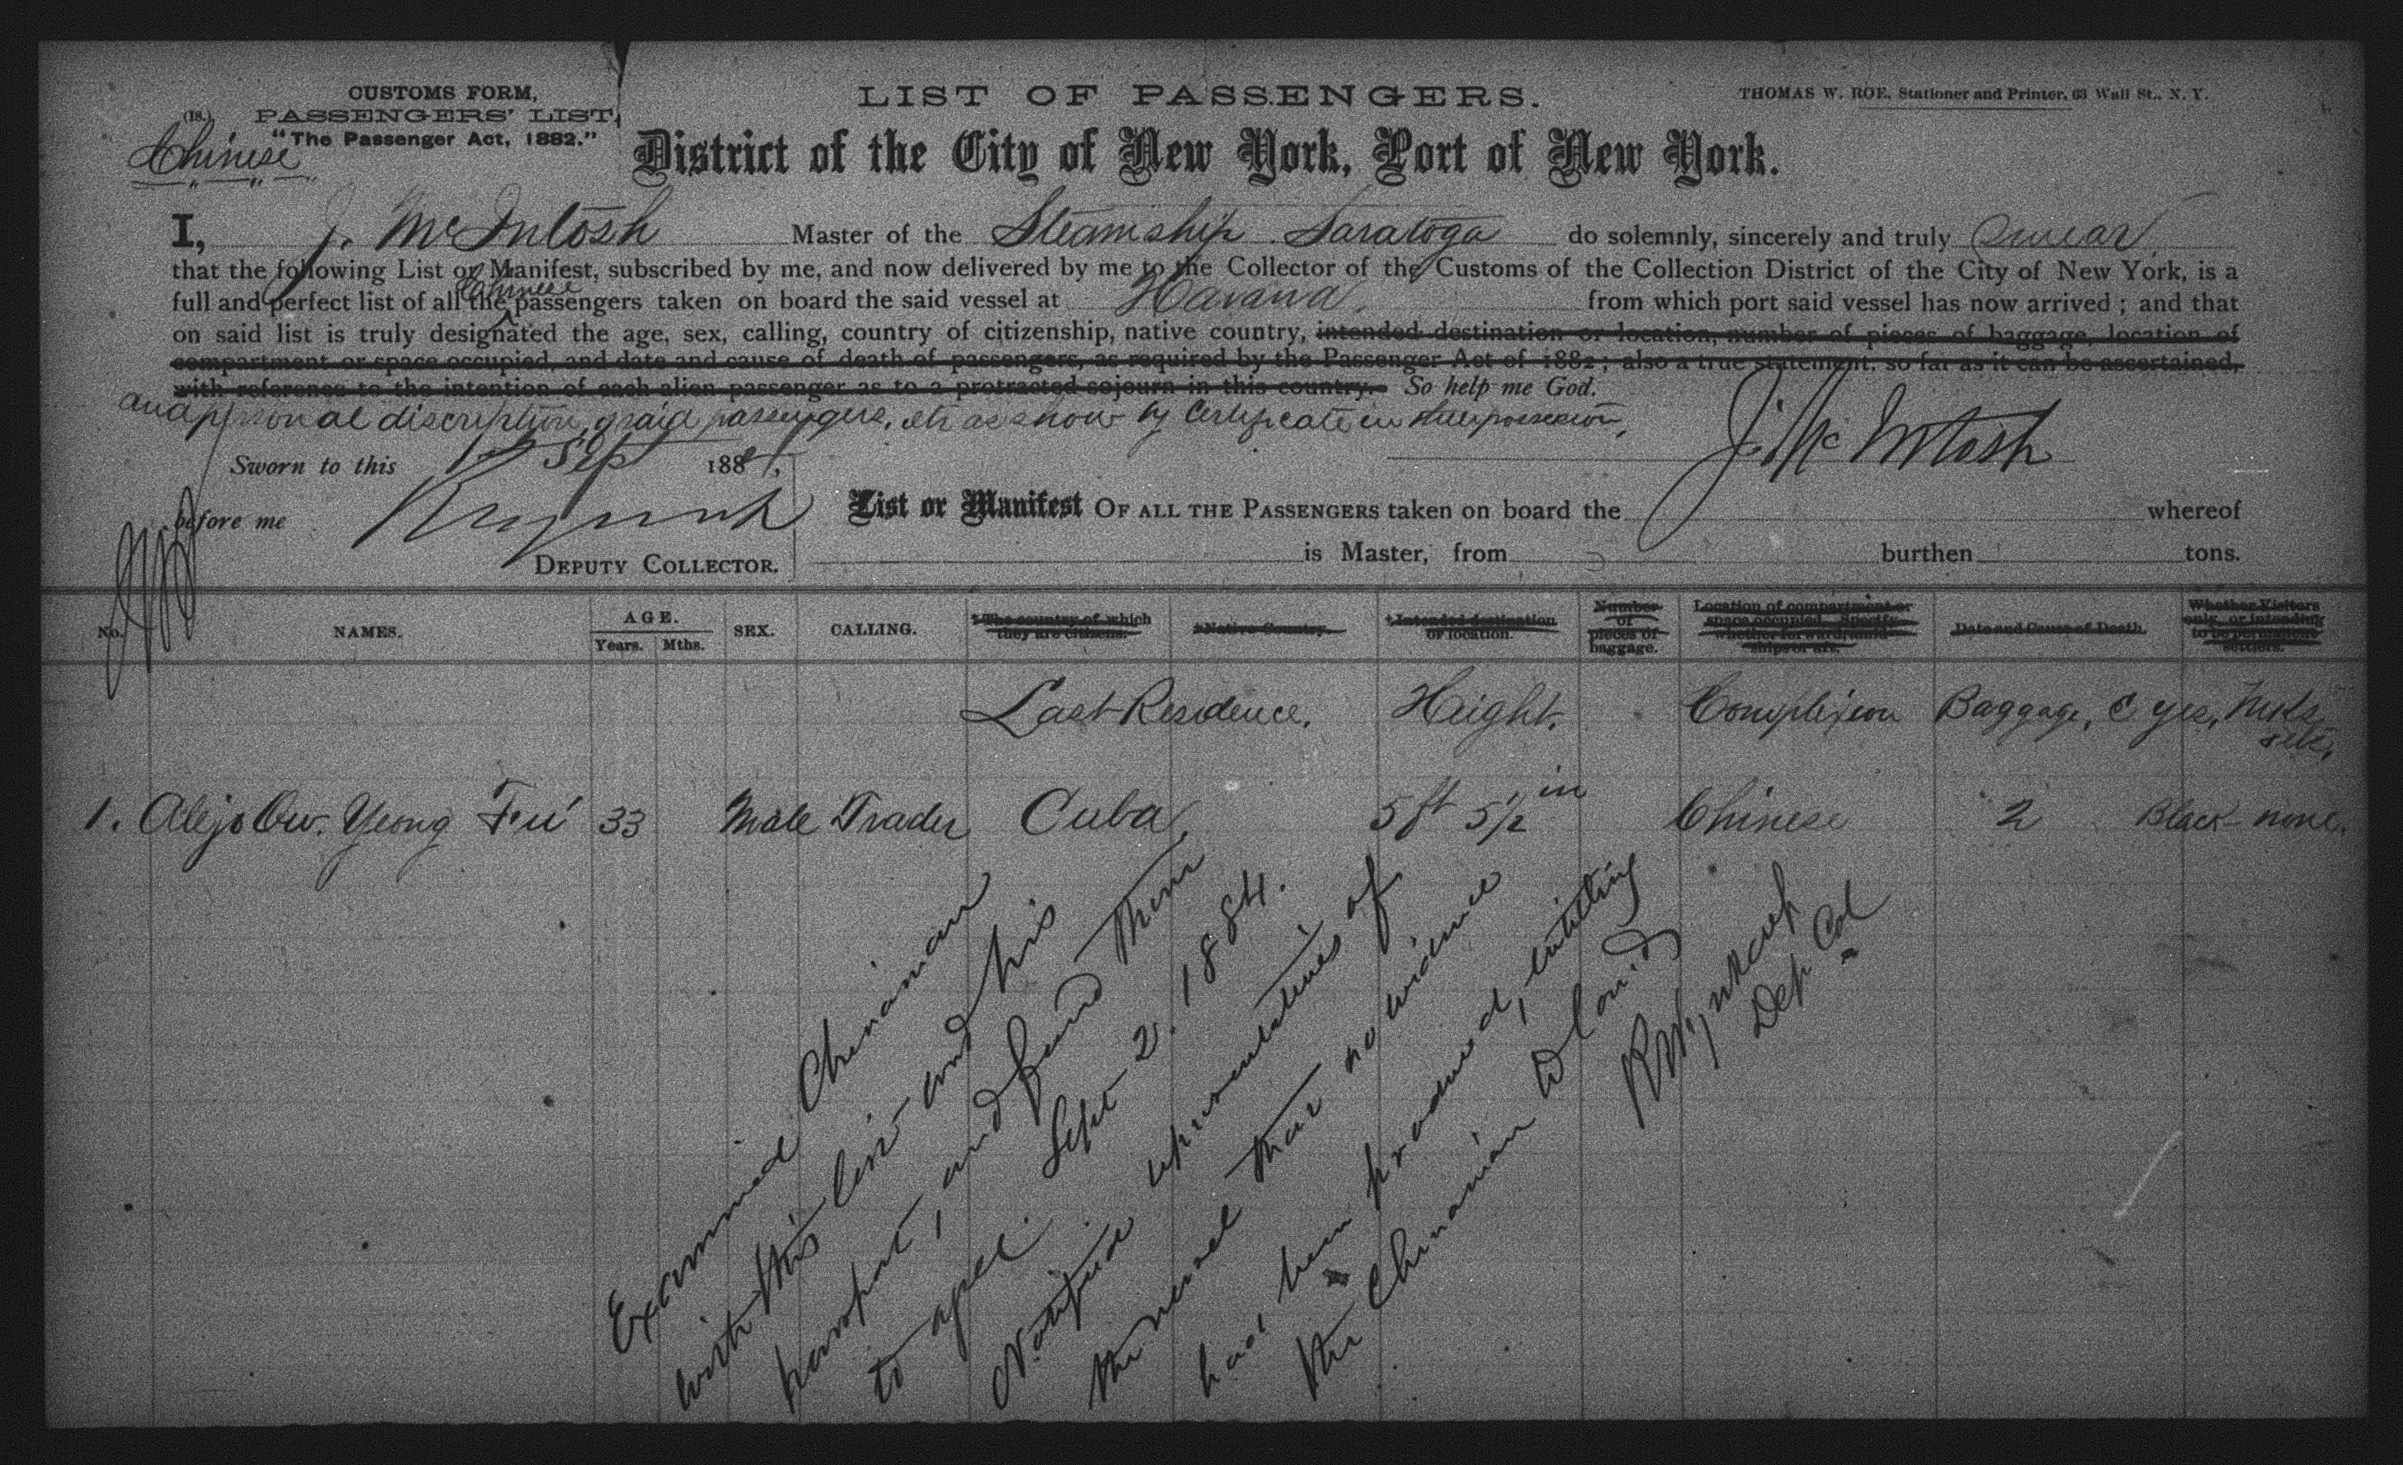 CUSTOMS FORM,
(18.) PASSENGERS' LIST,
"The Passenger Act, 1882."
Chinese
LIST OF PASSENGERS.
THOMAS W. ROE, Stationer and Printer, 63 Wall St., N. Y.
District of the City of New York, Port of New York.
I, J. McIntosh Master of the Steamship Saratoga do solemnly, sincerely and truly swear
that the following List or Manifest, subscribed by me, and now delivered by me to the Collector of the Customs of the Collection District of the City of New York, is a
full and perfect list of all the Chinese passengers taken on board the said vessel at Havana, from which port said vessel has now arrived ; and that
on said list is truly designated the age, sex, calling, country of citizenship, native country, intended destination or location, number of pieces of baggage, location of
compartment or space occupied, and date and cause of death of passengers, as required by the Passenger Act of 1882 ; also a true statement, so far as it can be ascertained,
with reference to the intention of each alien passenger as to a protracted sojourn in this country. So help me God.
and personal discription of said passengers, etc as show by Certificate in their possession,
J. McIntosh
Sworn to this Sept 1884,
before me
DEPUTY COLLECTOR.
List or Manifest OF ALL THE PASSENGERS taken on board the whereof
is Master, from burthen tons.
No. NAMES. AGE. Years. Mths. SEX. CALLING. The country of which they are citizens. Native Country. Intended destination or location. Number of pieces of baggage. Location of compartment or space occupied Date and Cause of Death. Whether Visitors only, or intending to be permanent settlers.
Last Residence. Height. Complexion Baggage, Eyes, Mks etc,
1. Alejo Ow. Yeong Fu 33 Male Trader Cuba, 5 ft 5½ in Chinese 2 Black none.
Examined Chinaman
with this list and his
passport, and found them
to agree. Sept 2. 1884.
Notified representatives of
the vessel that no evidence
had been produced, entitling
the Chinaman to land
Dep Col